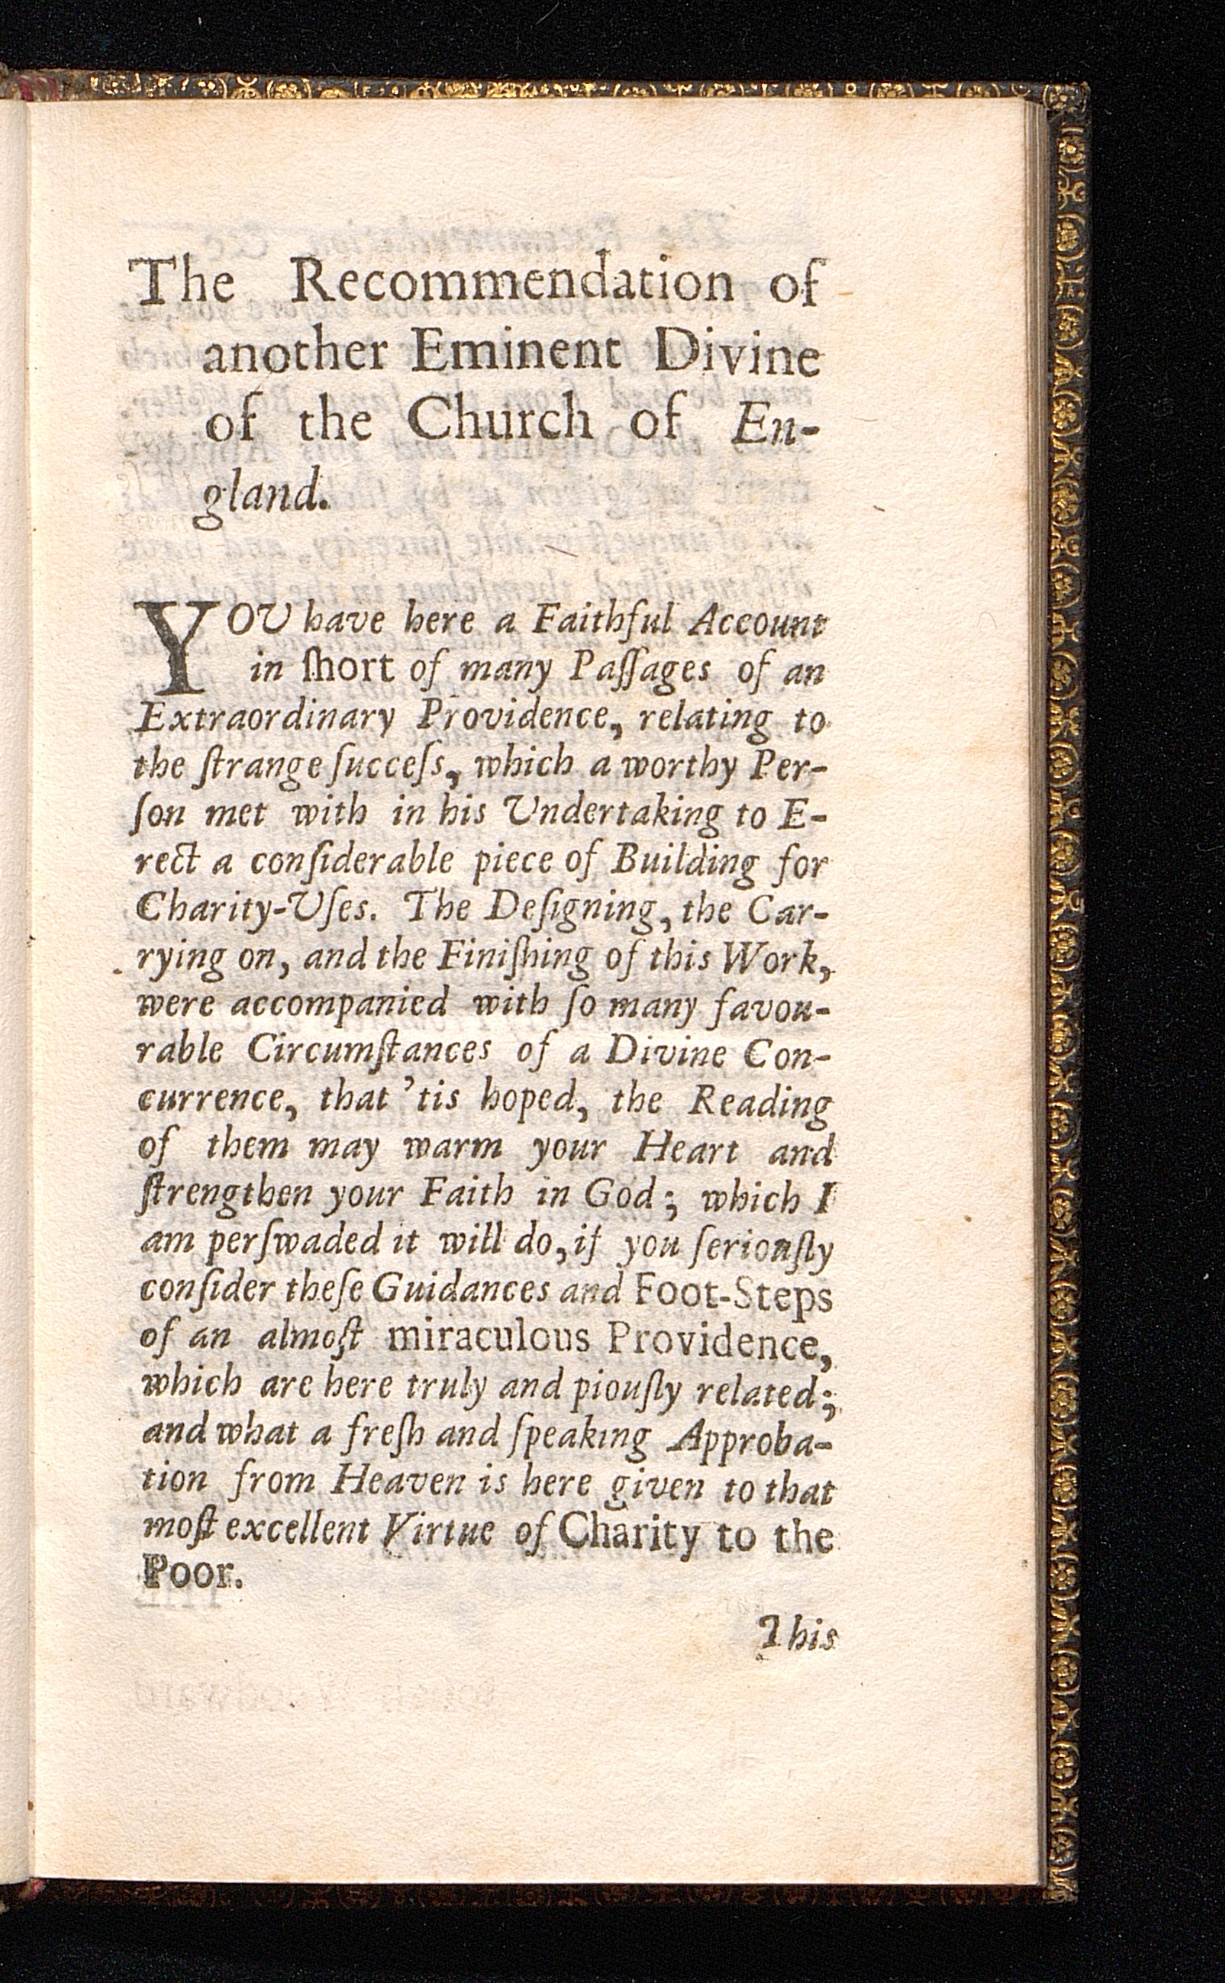 The Recommendation of
another Eminent Divine
of the Church of En-
gland.
YOU have here a Faithful Account
in ſhort of many Paſſages of an
Extraordinary Providence, relating to
the ſtrange ſucceſs, which a worthy Per-
ſon met with in his Undertaking to E-
rect a conſiderable piece of Building for
Charity-Uſes. The Deſigning, the Car-
rying on, and the Finiſhing of this Work,
were accompanied with ſo many favou-
rable Circumſtances of a Divine Con-
currence, that 'tis hoped, the Reading
of them may warm your Heart and
ſtrengthen your Faith in God; which I
am perſwaded it will do, if you ſeriouſly
conſider theſe Guidances and Foot-Steps
of an almoſt miraculous Providence,
which are here truly and piouſly related;
and what a freſh and ſpeaking Approba-
tion from Heaven is here given to that
moſt excellent Virtue of Charity to the
Poor.
This